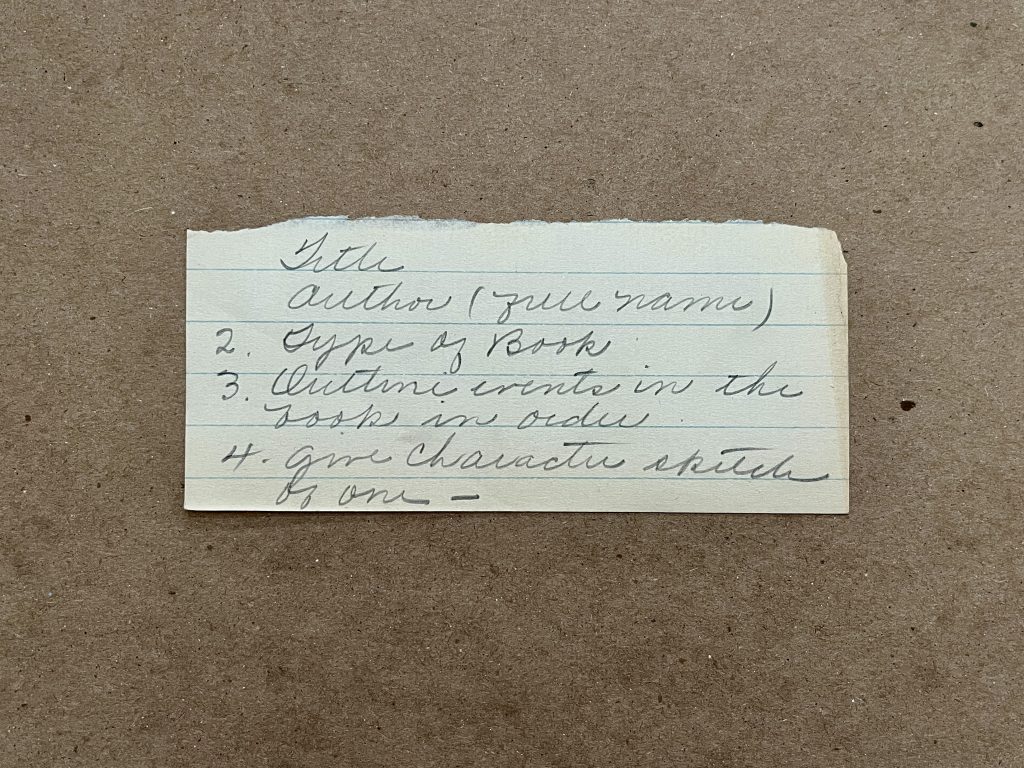 Title
Author (full name)
2. Type of Book
3. Outline events in the
book in order
4. Give Character sketch
of one —